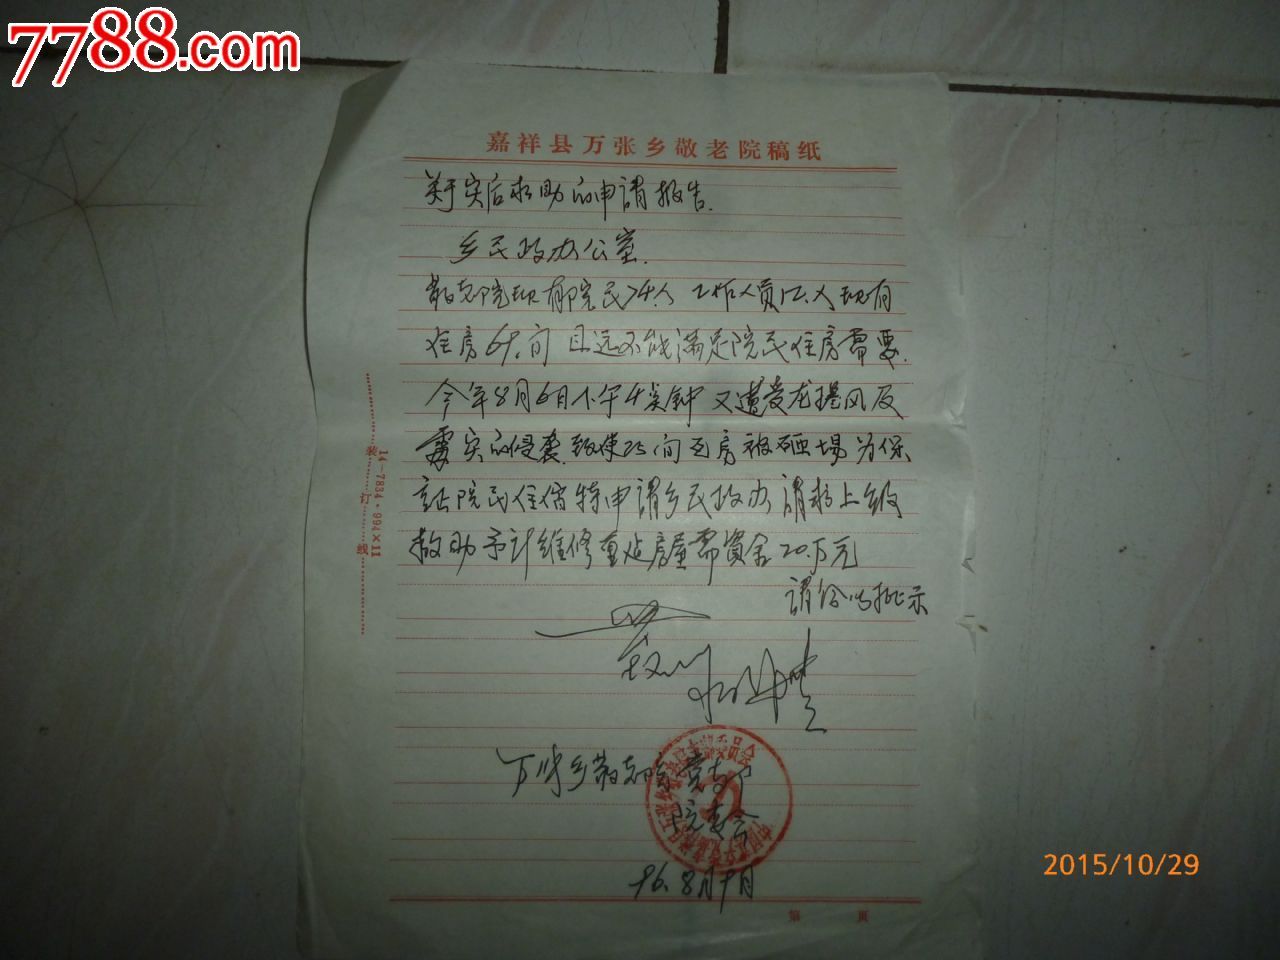 7788.com
嘉祥县万张乡敬老院稿纸
关于灾后求助的申請报告.
乡民政办公室.
敬老院现有院民74人 工作人员12人现有
住房69间 且远不能满足院民住房需要.
今年8月6日下午4点钟 又遭受龙捲风及
雹灾的侵袭.致使25间瓦房被砸塌 为保
证院民住宿特申请乡民政办 請求上级
救助 予计维修重建房屋需資金20.万元
請给以批示
万张乡敬老院党支部
院委会
96.8月9日
装订线
14-7834·994×11
第 页
2015/10/29